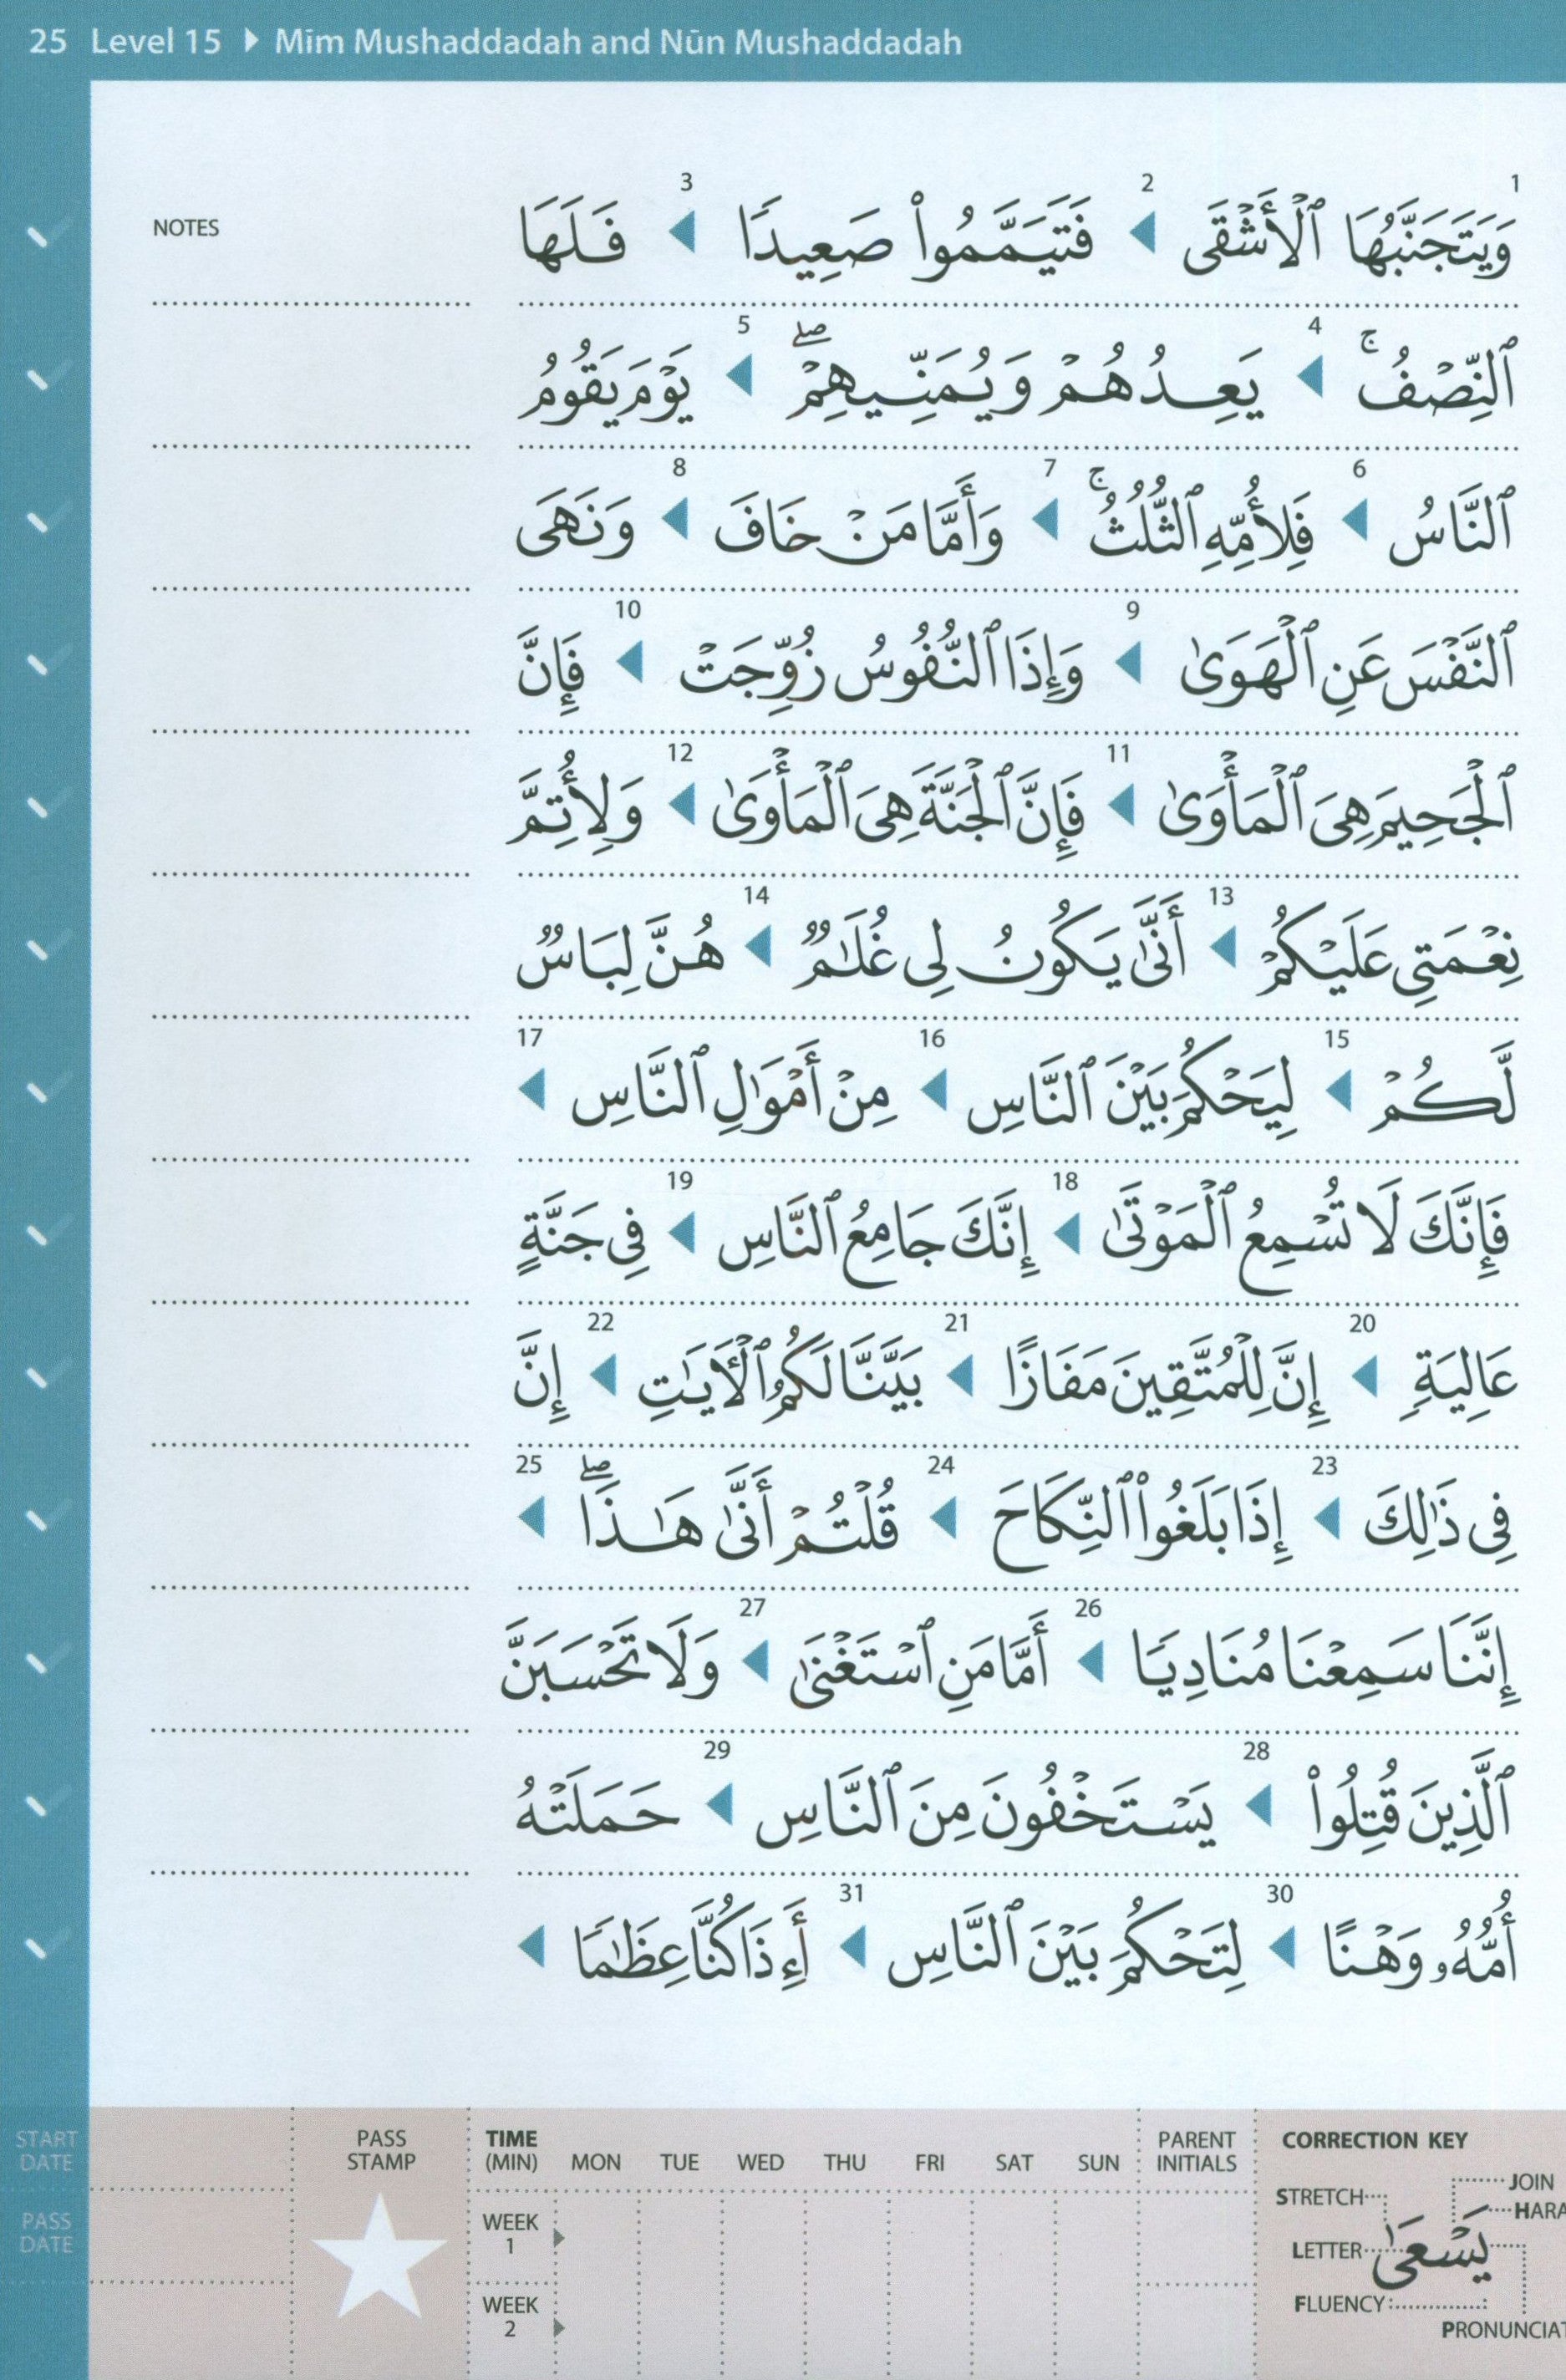 25 Level 15 ▶ Mīm Mushaddadah and Nūn Mushaddadah
1 2 3
وَيَتَجَنَّبُهَا ٱلْأَشْقَى ◀ فَتَيَمَّمُوا۟ صَعِيدًا ◀ فَلَهَا
NOTES
4 5
ٱلنِّصْفُ ۚ ◀ يَعِدُهُمْ وَيُمَنِّيهِمْ ۖ ◀ يَوْمَ يَقُومُ
6 7 8
ٱلنَّاسُ ◀ فَلِأُمِّهِ ٱلثُّلُثُ ۚ ◀ وَأَمَّا مَنْ خَافَ ◀ وَنَهَى
9 10
ٱلنَّفْسَ عَنِ ٱلْهَوَىٰ ◀ وَإِذَا ٱلنُّفُوسُ زُوِّجَتْ ◀ فَإِنَّ
11 12
ٱلْجَحِيمَ هِىَ ٱلْمَأْوَىٰ ◀ فَإِنَّ ٱلْجَنَّةَ هِىَ ٱلْمَأْوَىٰ ◀ وَلِأُتِمَّ
13 14
نِعْمَتِى عَلَيْكُمْ ◀ أَنَّىٰ يَكُونُ لِى غُلَـٰمٌ ◀ هُنَّ لِبَاسٌ
15 16 17
لَّكُمْ ◀ لِيَحْكُمَ بَيْنَ ٱلنَّاسِ ◀ مِنْ أَمْوَٰلِ ٱلنَّاسِ ◀
18 19
فَإِنَّكَ لَا تُسْمِعُ ٱلْمَوْتَىٰ ◀ إِنَّكَ جَامِعُ ٱلنَّاسِ ◀ فِى جَنَّةٍ
20 21 22
عَالِيَةٍ ◀ إِنَّ لِلْمُتَّقِينَ مَفَازًا ◀ بَيَّنَّا لَكُمُ ٱلْـَٔايَـٰتِ ◀ إِنَّ
23 24 25
فِى ذَٰلِكَ ◀ إِذَا بَلَغُوا۟ ٱلنِّكَاحَ ◀ قُلْتُمْ أَنَّىٰ هَـٰذَا ۖ ◀
26 27
إِنَّنَا سَمِعْنَا مُنَادِيًا ◀ أَمَّا مَنِ ٱسْتَغْنَىٰ ◀ وَلَا تَحْسَبَنَّ
28 29
ٱلَّذِينَ قُتِلُوا۟ ◀ يَسْتَخْفُونَ مِنَ ٱلنَّاسِ ◀ حَمَلَتْهُ
30 31
أُمُّهُۥ وَهْنًا ◀ لِتَحْكُمَ بَيْنَ ٱلنَّاسِ ◀ أَءِذَا كُنَّا عِظَـٰمًا ◀
START DATE
PASS DATE
PASS STAMP
TIME (MIN) MON TUE WED THU FRI SAT SUN PARENT INITIALS
WEEK 1
WEEK 2
CORRECTION KEY
JOIN
STRETCH HARA
LETTER يَسْعَىٰ
FLUENCY
PRONUNCIAT